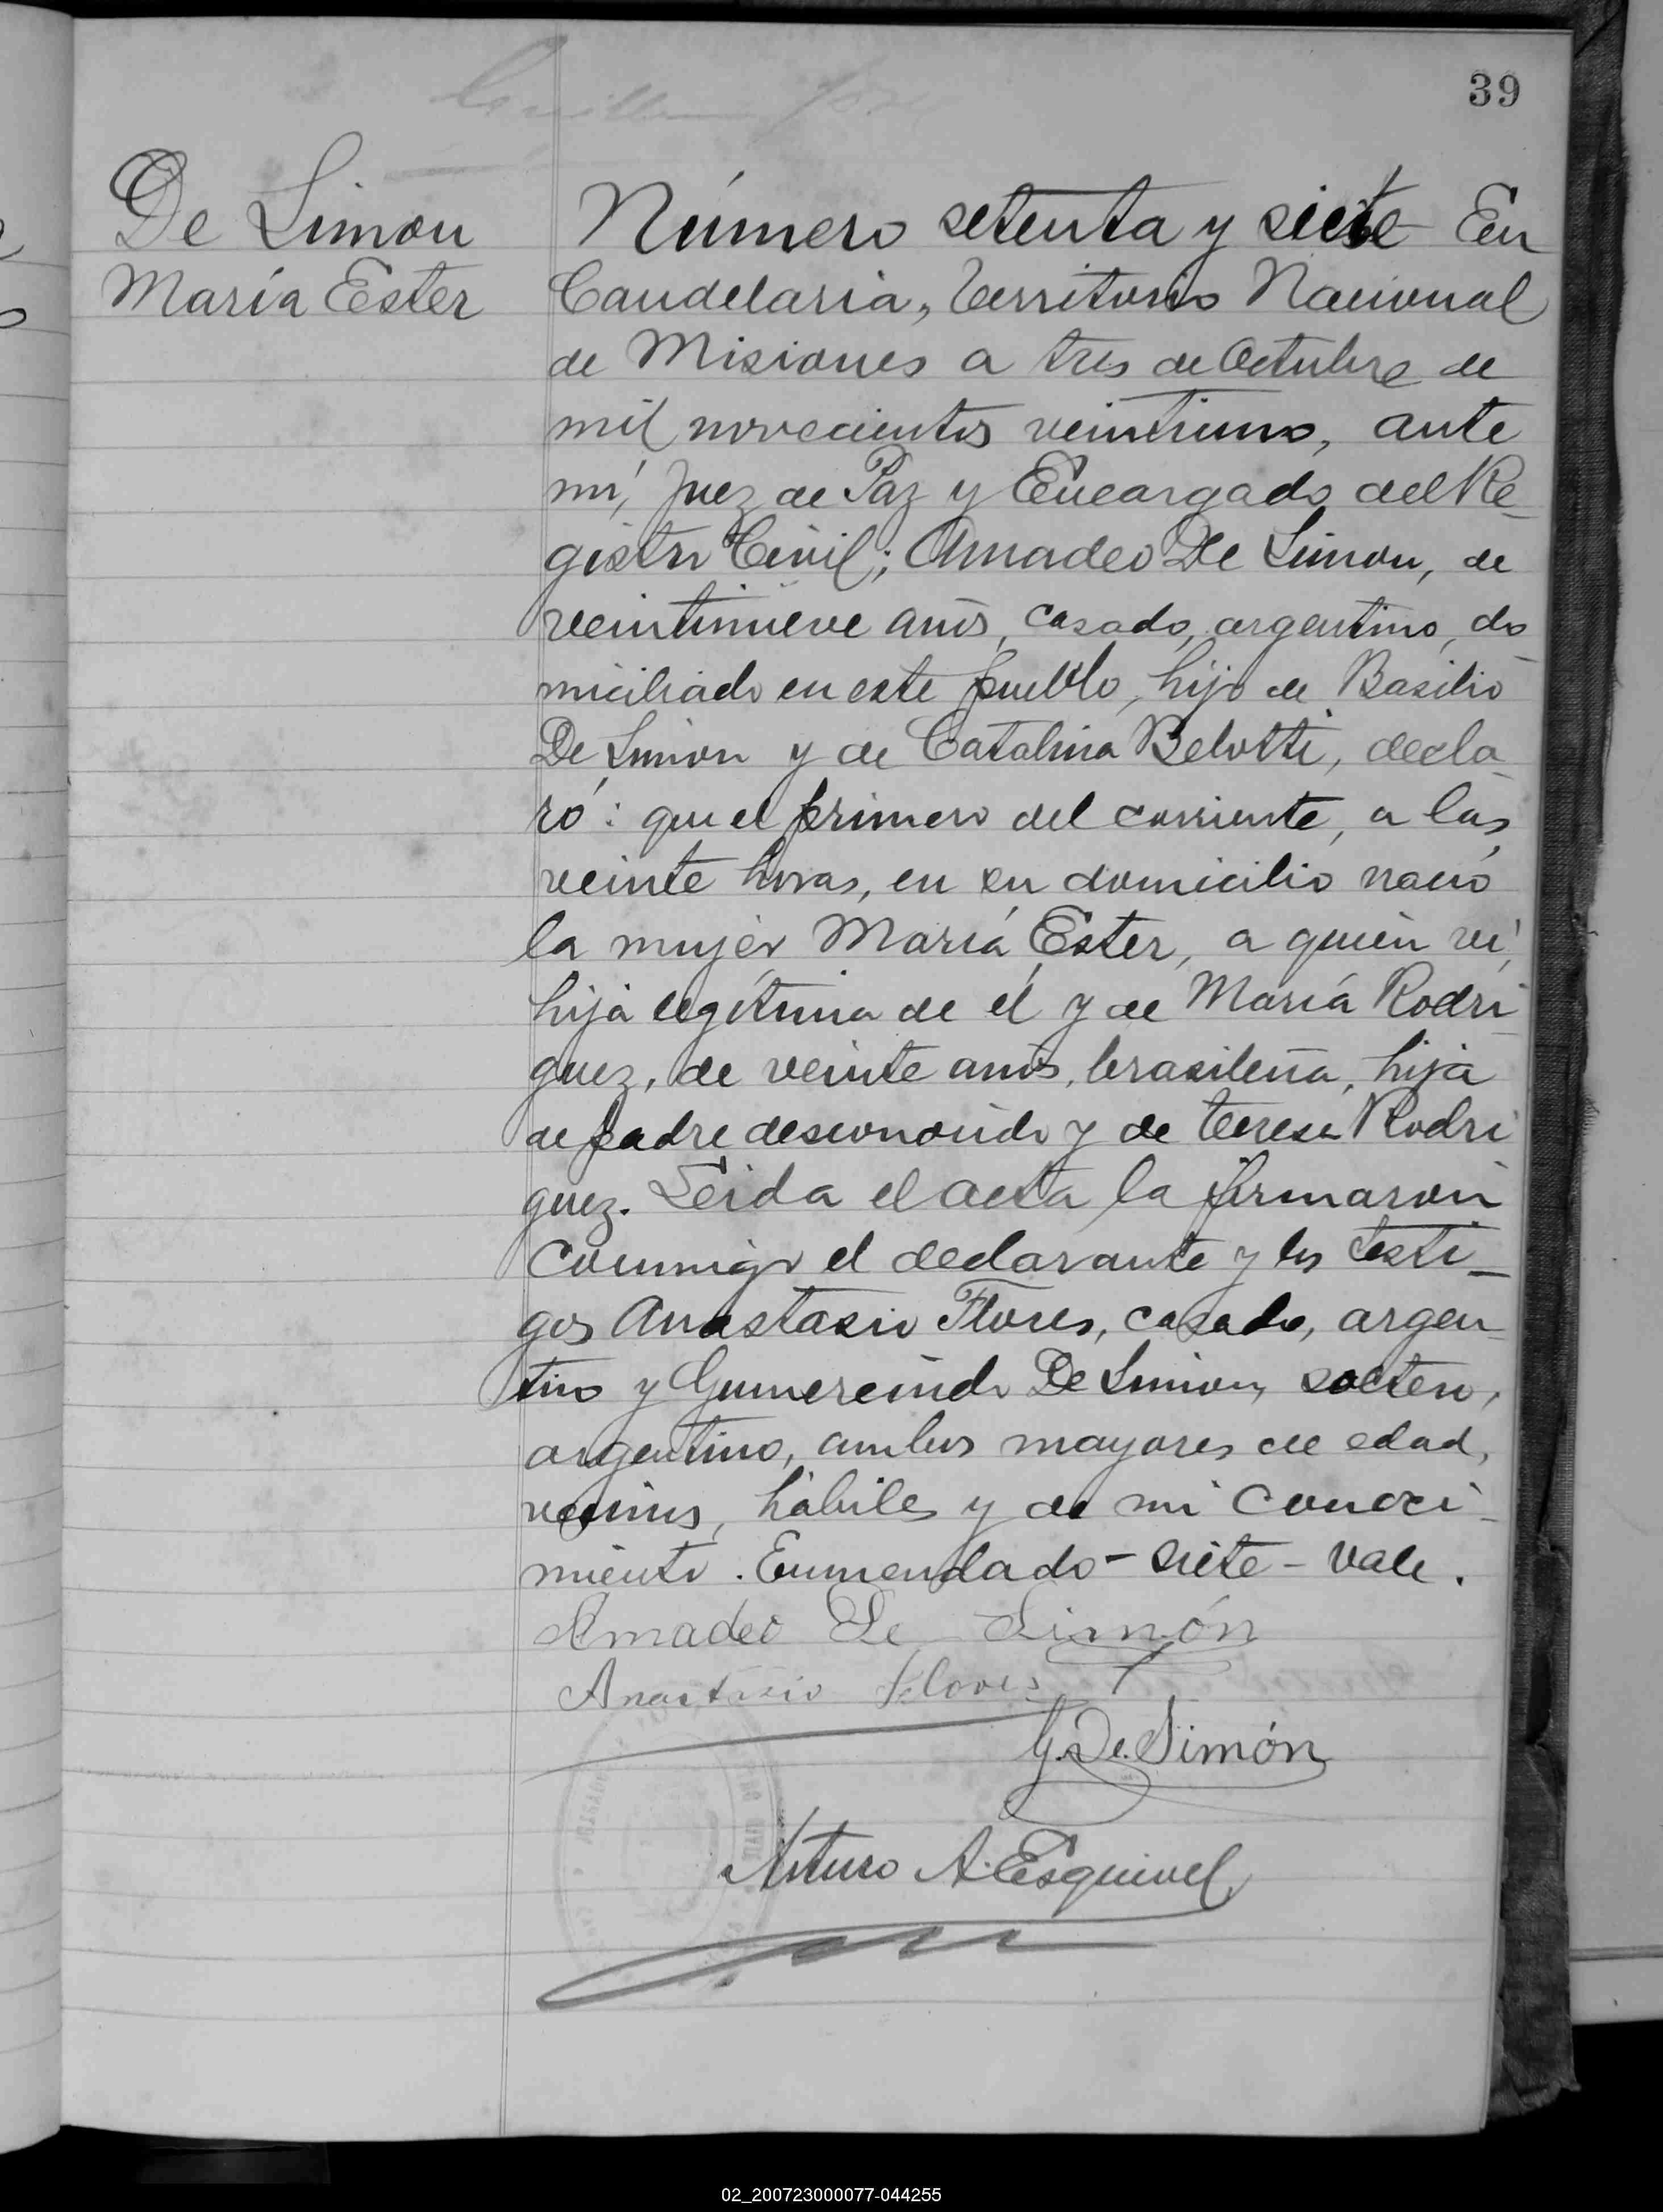 39
De Simon
María Ester
Número setenta y siete En
Candelaria, Territorio Nacional
de Misiones a tres de Octubre de
mil novecientos veintiuno, ante
mí, Juez de Paz y Encargado del Re-
gistro Civil; Amadeo De Simon, de
veintinueve años, casado, argentino, do
miciliado en este pueblo, hijo de Basilio
De Simon y de Catalina Belotti, decla
ró: que el primero del corriente, a las
veinte horas, en su domicilio nació
la mujer María Ester, a quien ví,
hija legítima de él y de María Rodri
guez, de veinte años, brasileña, hija
de padre desconocido y de Teresa Rodri
guez. Leida el acta la firmaron
conmigo el declarante y los testi-
gos Anastasio Flores, casado, argen
tino y Gumercindo De Simon, soltero,
argentino, ambos mayores de edad,
vecinos, hábiles y de mi conoci-
miento. Enmendado - siete - vale.
Amadeo De Simón
Anastasio Flores
G. De. Simón
Arturo A. Esquivel
02_200723000077-044255